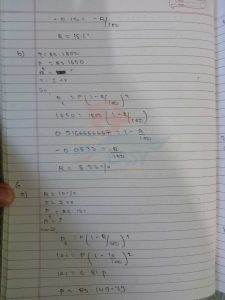 -0.15 = -R/100
R = 15%
b)
P = Rs. 1800
P = Rs 1650
R = ?
T = 1 yr
So,
P = P (1 - R/100)^T
1650 = 1800 (1 - R/100)
0.9166666667 = 1 - R
-0.0833 = -R/100
R = 8.33%
6
a)
R = 10%
T = 2 yr
P = Rs 121
P = ?
P = P (1 - R/100)^T
121 = P (1 - 10/100)^2
121 = 0.81 P
P = Rs. 149.39